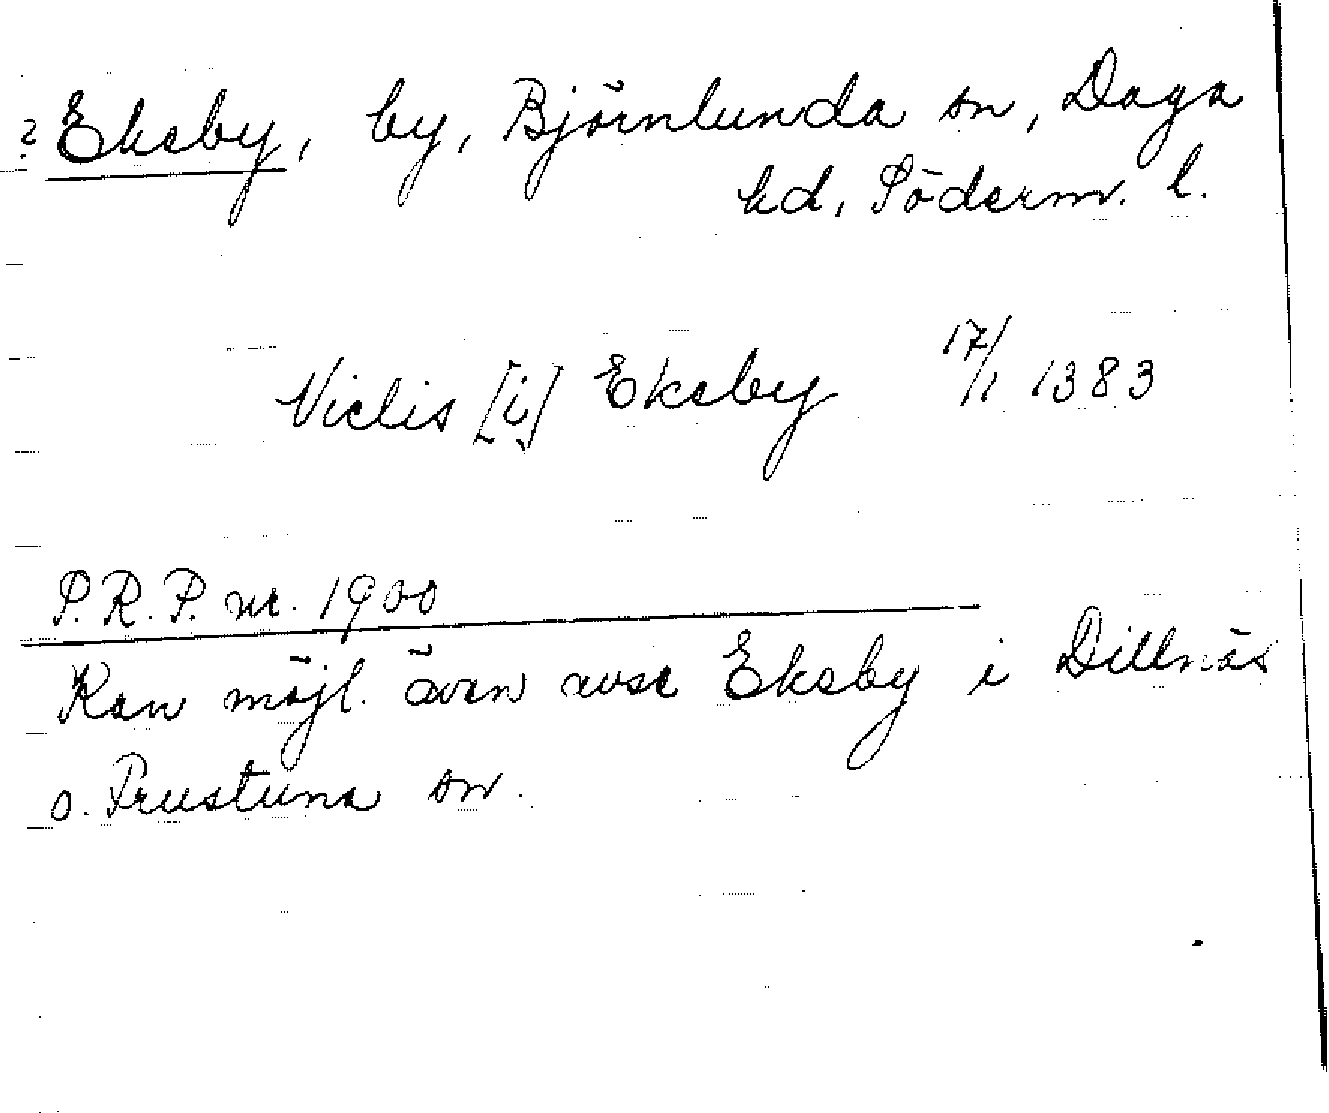 ? Eksby, by, Björnlunda sn, Daga
hd, Söderm. l.
Niclis [i] Eksby 17/1 1383
P.R.P. nr. 1900
Kan möjl. även avse Eksby i Dillnäs
o. Frustuna sn.